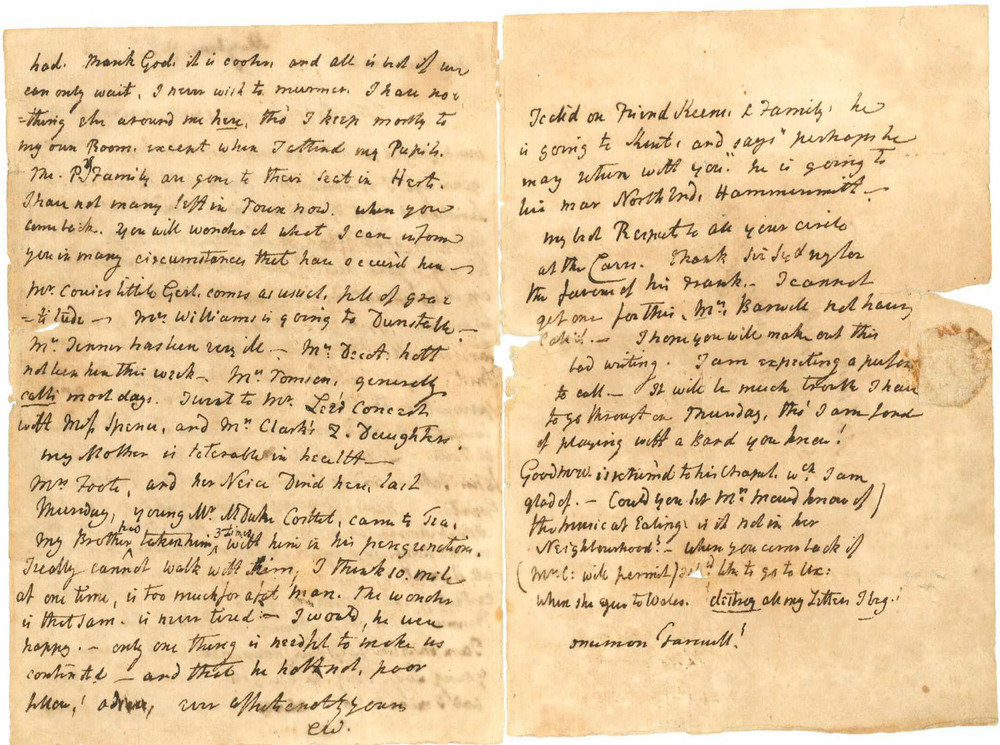 had. Thank God, it is cooler, and all is best if we
can only wait, I never wish to murmer. I have no=
=thing else around me here, tho' I keep mostly to
my own Room. except when I attend my Pupils.
The Family are gone to their Seat in Herts.
I have not many left in Town now. when you
come back. You will wonder at what I can inform
you in many circumstances that have occur'd here
Mr. little Girl. comes as usual, full of gra=
=titude — Mrs Williams is going to Dunstable —
Mr. Jenner has been very ill — Mr. hath
not been here this week — Mrs Tomson, generally
calls most days. I went to Mr. Concert
with Miss Spence, and Mrs Clark's 2. Daughters.
my Mother is tolerable in health —
Mrs Foote, and her Neice Dined here, last
Thursday, young Mr. came to Tea,
My Brother has taken him 3 times with him in his peregrenations.
I really cannot walk with him, I think 10. mile
at one time, is too much for a man. The wonder
is that Sam. is never tired — I would, he were
happy. — only one thing is needful to make us
contented — and that he hath not, poor
fellow! adieu, ever affectionately yours
CW.
I call'd on Friend & Family, he
is going to Kent, and says "perhaps he
may return with you." he is going to
live near North End, Hammersmith —
my best Respects to all your circle
at the Carrs. Thank Sir
the favour of his Frank. — I cannot
get one for this, Mrs Barwell not having
call'd. — I hope you will make out this
bad writing. I am expecting a person
to call — It will be much trouble I have
to go through on Thursday, tho' I am fond
of playing with a Band you know!
Goodnow is return'd to his Chapel. wch I am
glad of. — Could you let Mrs Maud know of
the music at Ealing is it not in her
Neighbourhood? — when you come back if
(Mrs C: will permit) like to go to Ux:
when she goes to Wales. destroy all my Letters I beg.!
once more Farewell!